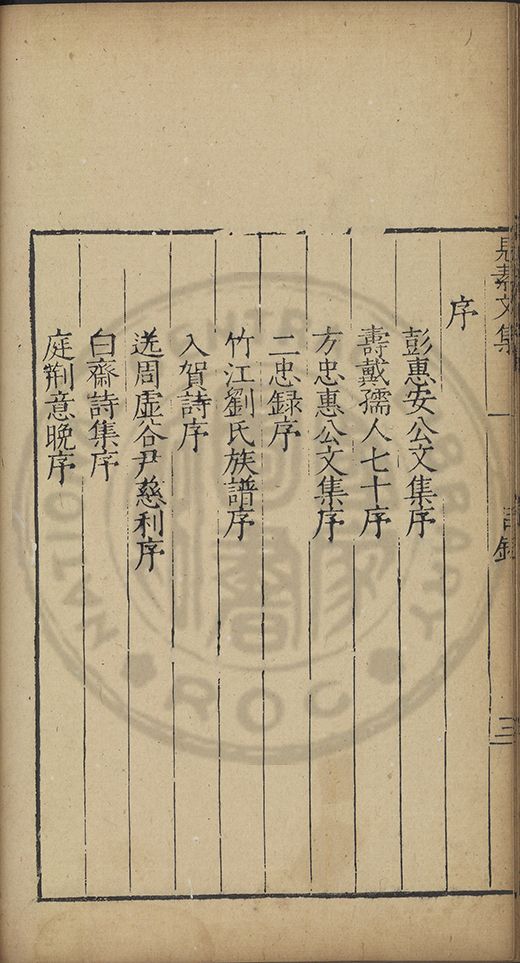 見素文集
目錄
三
序
彭惠安公文集序
壽戴孺人七十序
方忠惠公文集序
二忠録序
竹江劉氏族譜序
入賀詩序
送周虛谷尹慈利序
白齋詩集序
庭荆意晚序